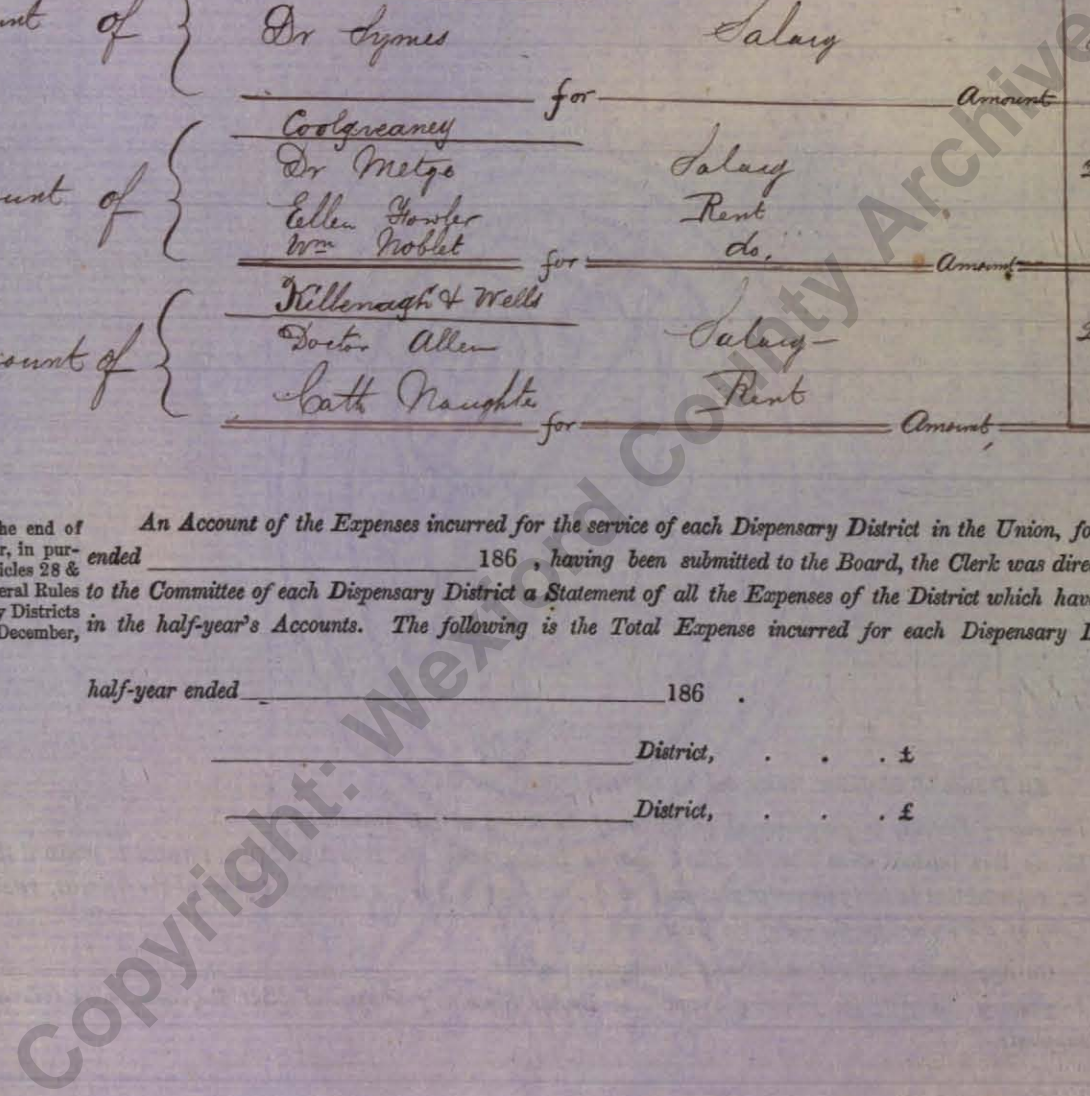 unt of { Dr Symes Salary
for Amount
Coolgreaney
Dr Metge Salary
unt of { Ellen Fowler Rent
Wm Noblet do.
for Amount
Killenagh & Wells
ount of { Doctor Allen Salary
Cath Naughte Rent
for Amount
he end of
r, in pur-
icles 28 &
eral Rules
y Districts
December,
An Account of the Expenses incurred for the service of each Dispensary District in the Union, fo
ended 186 , having been submitted to the Board, the Clerk was dire
to the Committee of each Dispensary District a Statement of all the Expenses of the District which hav
in the half-year's Accounts. The following is the Total Expense incurred for each Dispensary D
half-year ended 186 .
District, . . . £
District, . . . £
Copyright: Wexford County Archive